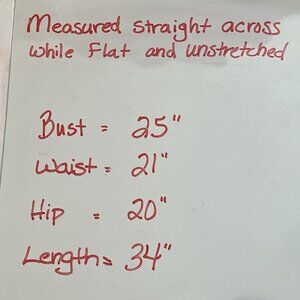 Measured straight across
while flat and unstretched
Bust = 25"
Waist = 21"
Hip = 20"
Length = 34"